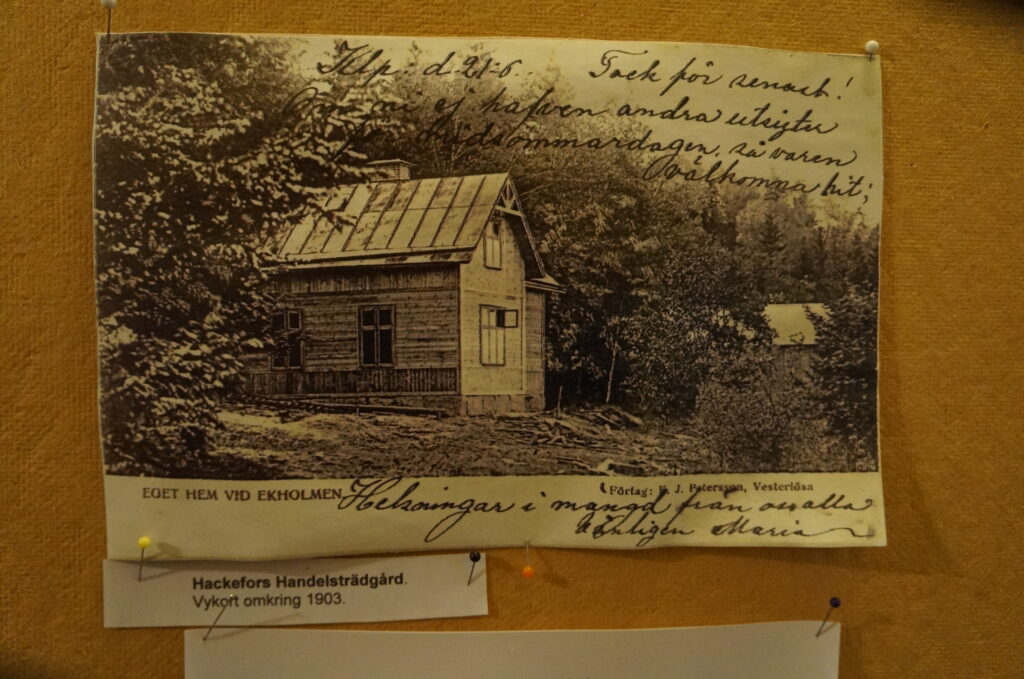 Klp. d. 21-6. Tack för senast!
Om ni ej hafven andra utsigter
för Midsommardagen, så varen
välkomna hit;
EGET HEM VID EKHOLMEN.
Förlag: F. J. Petersson, Vesterlösa
Helsningar i mängd från oss alla
Vänligen Maria
Hackefors Handelsträdgård.
Vykort omkring 1903.